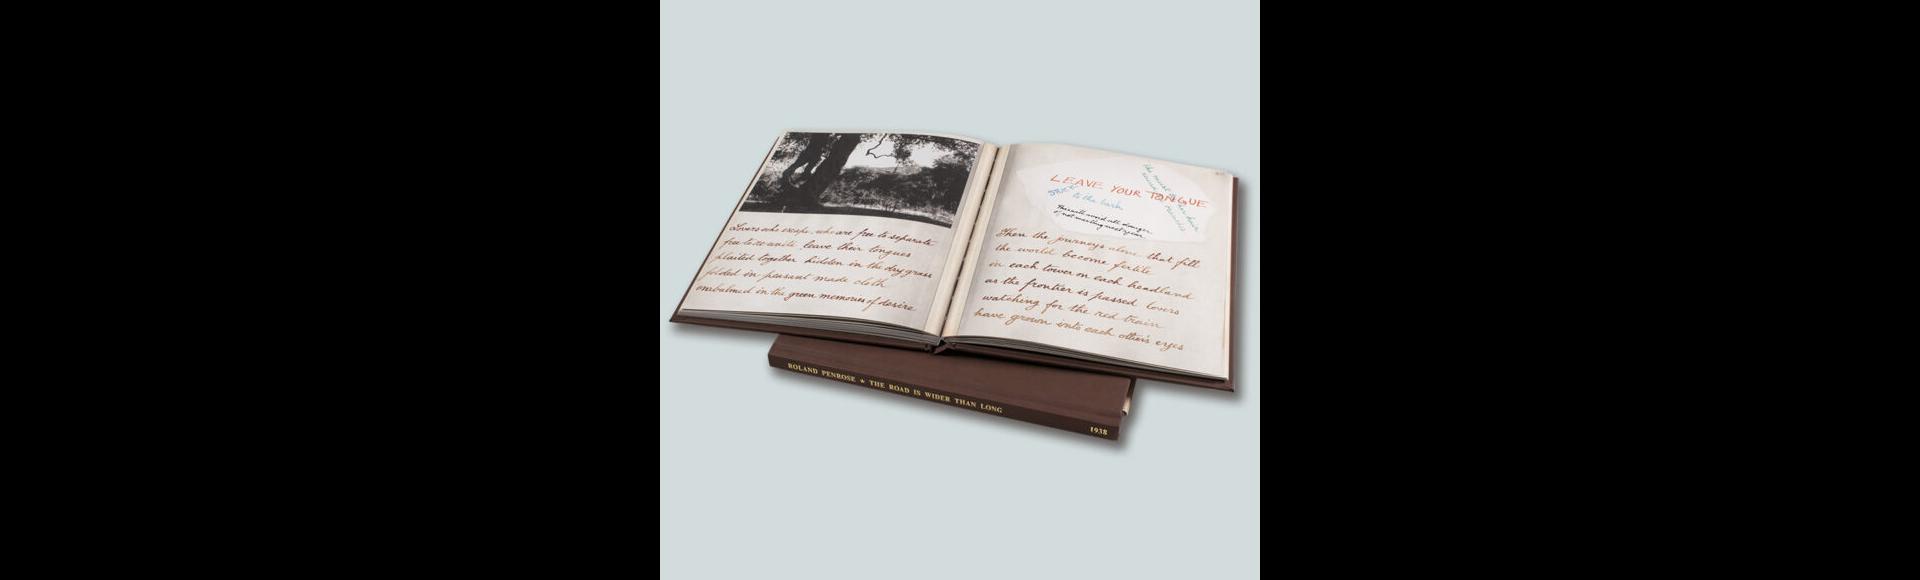 Lovers who escape, who are free to separate
free to re-unite, leave their tongues
plaited together hidden in the dry grass
folded in peasant made cloth
embalmed in the green memories of desire
LEAVE YOUR TONGUE
STUCK
to the bark
this will avoid all danger
of not meeting next year
Then the journeys alone that fill
the world become fertile
in each tower on each headland
as the frontier is passed lovers
watching for the red train
have grown into each other's eyes
ROLAND PENROSE ★ THE ROAD IS WIDER THAN LONG
1938